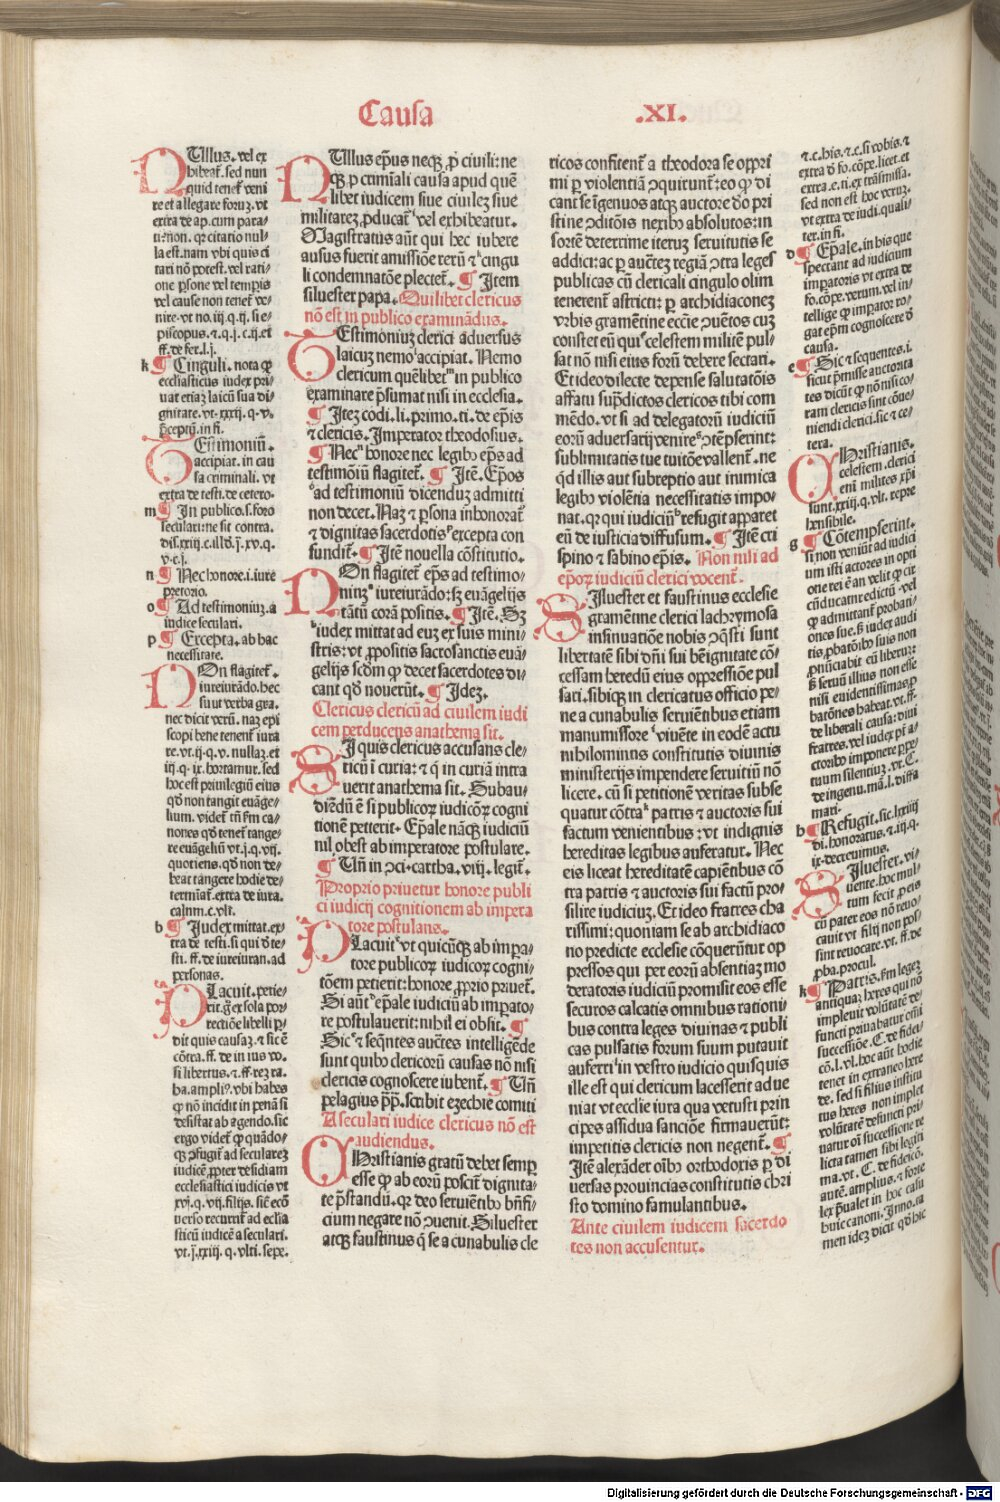 Causa
.XI.
Ullus. vel ex
hibeat̃. sed nun
quid tenet̃ veni
re et allegare foruz. vt
extra de ap. cum para-
ti: non. qr citatio nul-
la est. nam vbi quis ci
tari nõ potest. vel rati-
one p̱sone vel tempis
vel cause non tenet̃ ve-
nire. vt no. iij. q. ij. si e-
piscopus. ⁊ q. j. c. ij. et
ff. de fer. l. j.
k ¶ Cinguli. nota ꝙ
ecclesiasticus iudex pri-
uat etiaz laicũ sua di-
gnitate. vt. xxxij. q. v.
p̃ceptũ. in fi.
Estimoniũ.
accipiat. in cau
sa criminali. vt
extra de testi. de cetero.
m ¶ In publico. s. foro
seculari: ne sit contra.
n ¶ Nec honore. i. iure
pretorio.
o ¶ Ad testimoniuz. a
iudice seculari.
p ¶ Excepta. ab hac
necessitate.
On flagitet̃.
iureiurãdo. hec
sunt verba gea.
nec dicit verũ. naz epi
scopi bene tenent̃ iura
re. vt. ij. q. v. nullaz. et
iij. q. ix. hortamur. sed
hoc est priuilegiũ eius
qđ non tangit euãge-
lium. videt̃ tñ ꝑm ca-
nones qđ tenet̃ tange-
re euãgeliũ vt. j. q. vij.
quotiens. qđ non de-
beat tangere hodie de-
terminat̃. extra de iura.
calum. c. vlt.
b ¶ Judex mittat. ex-
tra de testi. si qui õ te-
sti. ff. de iureiuran. ad
personas.
Lacuit. petie-
rit. gͥ ex sola por-
rectiõe libelli p̱-
dit quis causaz. ⁊ sic ẽ
cõtra. ff. de in ius vo.
si libertus. ⁊ ff. rez ra.
ha. ampliꝰ. vbi habes
ꝙ nõ incidit in penã si
desistat ab agendo. sic
ergo videt̃ ꝙ quãdo-
ecclesiastici iudicis vt
verso recurrit̃ ad eclia
sticũ iudicẽ a seculari.
vt. j. xxiij. q. vlti. sepe.
Ullus ep̃us neqꝫ ꝓ ciuili: ne
qꝫ ꝓ crimĩali causa apud quẽ
libet iudicem siue ciuilez siue
militarez ꝓducat̃ vel exhibeatur.
Magistratus aũt qui hec iubere
ausus fuerit amissiõe rerũ ⁊ᵏcingu
li condemnatõe plectet̃. ¶ Item
siluester papa. Quilibet clericus
nõ est in publico examinãdus.
Estimoniuz clerici aduersus
laicuz nemo accipiat. Nemo
clericum quẽlibetᵐ in publico
examinare p̃sumat nisi in ecclesia.
¶ Itez codi. li. primo. ti. de ep̃is
⁊ clericis. Imperator theodosius.
¶ Necⁿ honore nec legibꝰ ep̃s ad
testimoiũ flagitet̃. ¶ Itẽ. Ep̃os
ᵒad testimoniũ dicenduz admitti
non decet. Naz ⁊ p̱sona inhonorat̃
⁊ dignitas sacerdotisᵖ excepta con
fundit̃. ¶ Itẽ nouella cõstitutio.
On flagitet̃ ep̃s ad testimo-
ninzᵃ iureiurãdo: sꝫ euãgelijs
tãtũ corã positis. ¶ Itẽ. Sꝫ
ᵇiudex mittat ad euz ex suis mini-
stris: vt ꝓpositis sacrosanctis euã-
gelijs scđm ꝙ decet sacerdotes di-
cant qđ nouerũt. ¶ Idez.
Clericus clericũ ad ciuilem iudi
cem perducens anathema sit.
I quis clericus accusans cle-
ricũ ĩ curia: ⁊ q̃ in curiã intra
uerit anathema sit. Subau-
diẽdũ ẽ si publicoꝝ iudicoꝝ cogni
tionẽ petierit. Ep̃ale nãqꝫ iudiciũ
nil obest ab imperatore postulare.
¶ Uñ in ↄci. cartha. viij. legit̃.
Proprio priuetur honore publi
ci iudicij cognitionem ab impera
tore postulans.
Lacuitᶜ vt quicũqꝫ ab im̱pa-
tore publicoꝝ iudicoꝝ cogni-
tõem petierit: honore ꝓprio priuet̃.
Si aũtᵈ ep̃ale iudiciũ ab impato-
re postulauerit: nihil ei obsit. ¶
Sicᵉ ⁊ seq̃ntes auctẽs intelligẽde
sunt quibꝰ clericorũ causas nõ nisi
clericis cognoscere iubent̃. ¶ Uñ
pelagius pp̃. scribit ezechie comiti
A seculari iudice clericus nõ est
audiendus.
Hristianis gratũ debet semp̱
esse ꝙ ab eorũ poscit̃ dignita-
te p̃standũ. qr deo seruiẽtibꝰ bñfi-
cium negare nõ ↄuenit. Siluester
atqꝫ faustinus q̃ se a cunabulis cle
ricos confitent̃ a theodora se oppri
mi p̱ violentiã ↄquirunt̃: eo ꝙ di
cant se ĩgenuos atqꝫ auctore dõ pri
stine ↄditõis nexibꝰ absolutos: in
sortẽ deterrime iteruz seruitutis se
addici: ac p̱ auctez regiã ↄtra leges
publicas cũ clericali cingulo olim
tenerent̃ astricti: p̱ archidiaconez
vrbis gramẽtine eccĩe ↄuẽtos cuz
constet eũ quiᶠ celestem militẽ pul-
sat nõ nisi eius forũ debere sectari.
Et ideo dilecte depense salutatõis
affatu sup̱dictos clericos tibi com
mẽdo. vt si ad delegatorũ iudiciũ
eorũ aduersarij venireᵍ ↄtẽpserint:
sublimitatis tue tuitõe vallent̃. ne
q̃d illis aut subreptio aut inimica
legibꝰ violẽtia necessitatis impo-
nat. qr qui iudiciũʰ refugit apparet
eũ de iusticia diffusum. ¶ Itẽ cri
spino ⁊ sabino ep̃is. Non nisi ad
ep̃oꝝ iudiciũ clerici vocent̃.
Iluester et faustinus ecclesie
gramẽtine clerici lachrymosa
insinuatiõe nobis ↄq̃sti sunt
libertatẽ sibi dñi sui bẽignitate cõ-
cessam heredũ eius oppressiõe pul
sari. sibiqꝫ in clericatus officio pe-
ne a cunabulis seruiẽtibus etiam
manumissoreⁱ viuẽte in eodẽ actu
nihilominus constitutis diuinis
ministerijs impendere seruitiũ nõ
licere. cũ si petitionẽ veritas subse
quatur cõtraᵏ patris ⁊ auctoris sui
factum venientibus: vt indignis
hereditas legibus auferatur. Nec
eis liceat hereditatẽ capientibus cõ
tra patris ⁊ auctoris sui factũ pro-
silire iudiciuz. Et ideo fratres cha
rissimi: quoniam se ab archidiaco
no predicte ecclesie cõquerũtur op
pressos qui per eorũ absentiaz mo
deratoris iudiciũ promisit eos esse
securos calcatis omnibus rationi-
bus contra leges diuinas ⁊ publi
cas pulsatis forum suum putauit
auferri: in vestro iudicio quisquis
ille est qui clericum lacesserit adue
niat vt ecclie iura qua vetusti prin
cipes assidua sanciõe firmauerũt:
impetitis clericis non negent̃. ¶
Itẽ alexãder oĩbꝰ orthodoxis p̱ di
uersas prouincias constitutis chri
sto domino famulantibus.
Ante ciuilem iudicem sacerdo
tes non accusentur.
⁊. c. his. ⁊. c. si vobis. ⁊
extra ð fo. cõpe. licet. et
extra. e. ti. ex trãsmissa.
sed non est hoc veruz.
vt extra de iudi. quali-
ter. in fi.
d ¶ Ep̃ale. in bis que
spectant ad iudicium
imp̱atoris vt extra de
fo. cõpe. verum. vel in-
tellige ꝙ imp̱ator ro-
gat ep̃m cognoscere ð
causa.
e ¶ Sic ⁊ sequentes. i.
sicut p̃misse auctorita
tes dicũt ꝙ nõ nisi co-
ram clericis sint cõue-
niendi clerici. sic ⁊ ce-
tera.
Hristianis.
celestem. clerici
eni milites xp̃i
sunt. xxiij. q. vlt. repre
hensibile.
g ¶ Cõtempserint.
si non veniũt ad iudici
um isti actores in opti
one rei ẽ an velit ꝙ cir
cũducatur edictũ. vel
ꝙ admittant̃ probati-
ones sue. s. iudex audi
tis ꝓbatõibꝰ suis non
ꝓnũciabit eũ liberuz:
ß seruũ illius non esse
nisi euidentissimas ꝓ
batõnes habeat. vt. ff.
de liberali causa: diui
fratres. vel iudex pt̃ a-
ctoribꝰ imponere ꝑpe-
tuum silentiuz. vt. C.
de ingenu. mã. l. diffa
mari.
h ¶ Refugit. sic. lxxiiij
di. honoratus. ⁊. iij. q.
ix. decreuimus.
Iluester. vi-
uente. hoc mul-
tum fecit ꝓ eis
cũ pater eos nõ reuo-
cauit vt filij non pos-
sint reuocare. vt. ff. de
ꝓba. procul.
k ¶ Patris. s. ꝑm legez
antiquaz heres qui nõ
impleuit volũtatẽ de-
functi priuabatur oĩni
successiõe. C. de fidei-
cõ. l. vl. hoc aũt hodie
tenet in extraneo here
de. sed si filius institu
tus heres non implet
volũtatẽ defuncti pri-
uatur oĩ successione re
licta tamen sibi legiti
ma. vt. C. de fideicõ.
autẽ. amplius. ⁊ forte
lex p̃ualet in hoc casu
huic canoni. Inno. ta
men idez dicit qđ hic